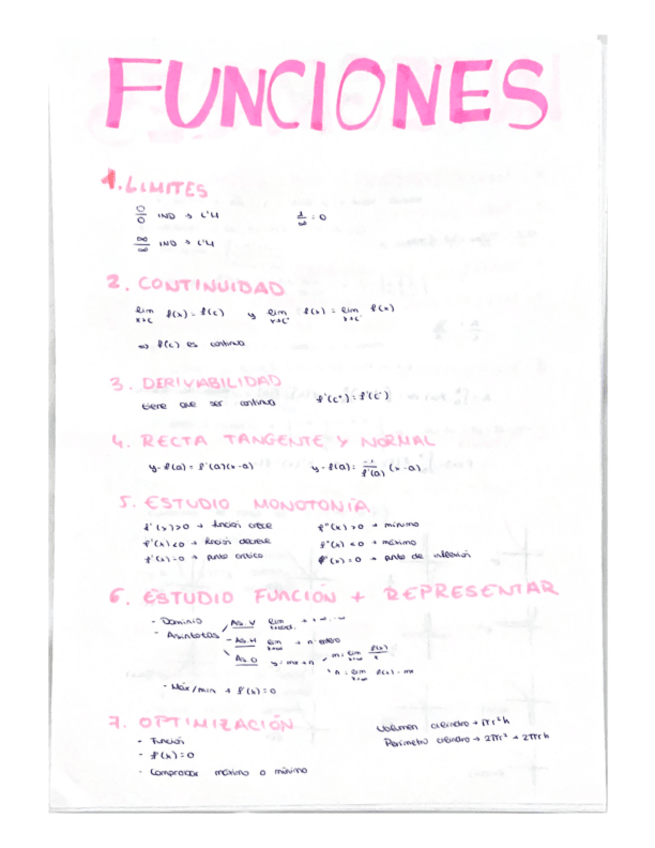 FUNCIONES
1. LIMITES
0/0 IND → L'H    1/∞ = 0
∞/∞ IND → L'H
2. CONTINUIDAD
lim x→c f(x) = f(c) y lim x→c⁺ f(x) = lim x→c⁻ f(x)
⇒ f(c) es continua
3. DERIVABILIDAD
tiene que ser continua    f'(c⁺) = f'(c⁻)
4. RECTA TANGENTE Y NORMAL
y - f(a) = f'(a)(x-a)    y - f(a) = -1/f'(a) (x-a)
5. ESTUDIO MONOTONÍA
f'(x)>0 → función crece    f''(x)>0 → mínimo
f'(x)<0 → función decrece    f''(x)<0 → máximo
f'(x)=0 → punto crítico    f''(x)=0 → punto de inflexión
6. ESTUDIO FUNCION + REPRESENTAR
- Dominio
- Asíntotas
AS. V lim
AS. H lim x→∞ → nº entero
AS. O y = mx + n
m = lim x→∞ f(x)/x
n = lim x→∞ f(x) - mx
- Máx/min → f'(x)=0
7. OPTIMIZACIÓN
- Función
- f'(x)=0
- Comprobar máximo o mínimo
Volumen cilindro → πr²h
Perímetro cilindro → 2πr² + 2πrh